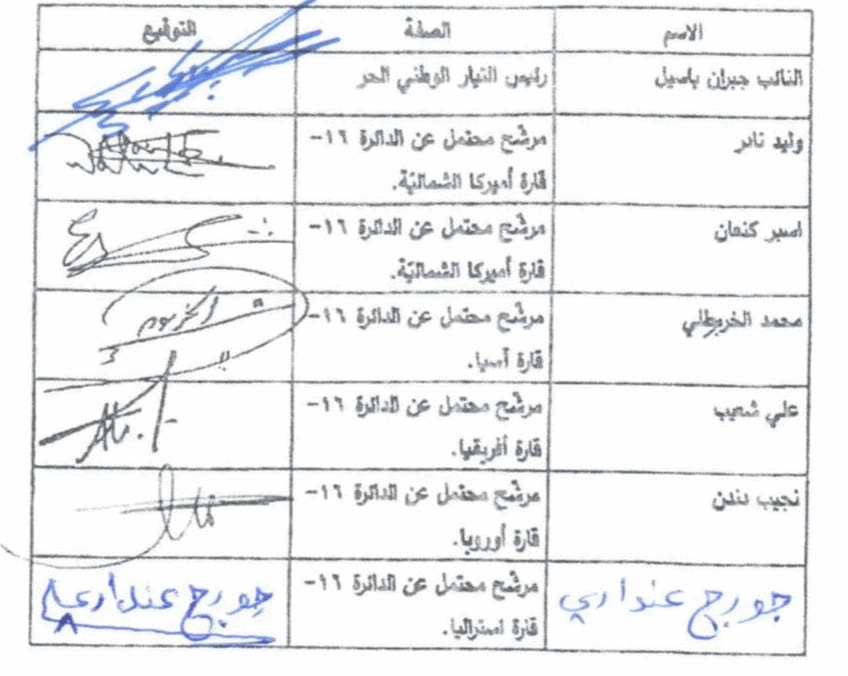 الاسم الصفة التوقيع
النائب جبران باسيل رئيس التيار الوطني الحر
وليد تامر مرشّح محتمل عن الدائرة ١٦-
قارة أميركا الشماليّة.
اسبر كنعان مرشّح محتمل عن الدائرة ١٦-
قارة أميركا الشماليّة.
محمد الخربطلي مرشّح محتمل عن الدائرة ١٦-
قارة آسيا.
علي شعيب مرشّح محتمل عن الدائرة ١٦-
قارة أفريقيا.
نجيب دندن مرشّح محتمل عن الدائرة ١٦-
قارة أوروبا.
جورج عنداري مرشّح محتمل عن الدائرة ١٦- جورج عنداري
قارة استراليا.